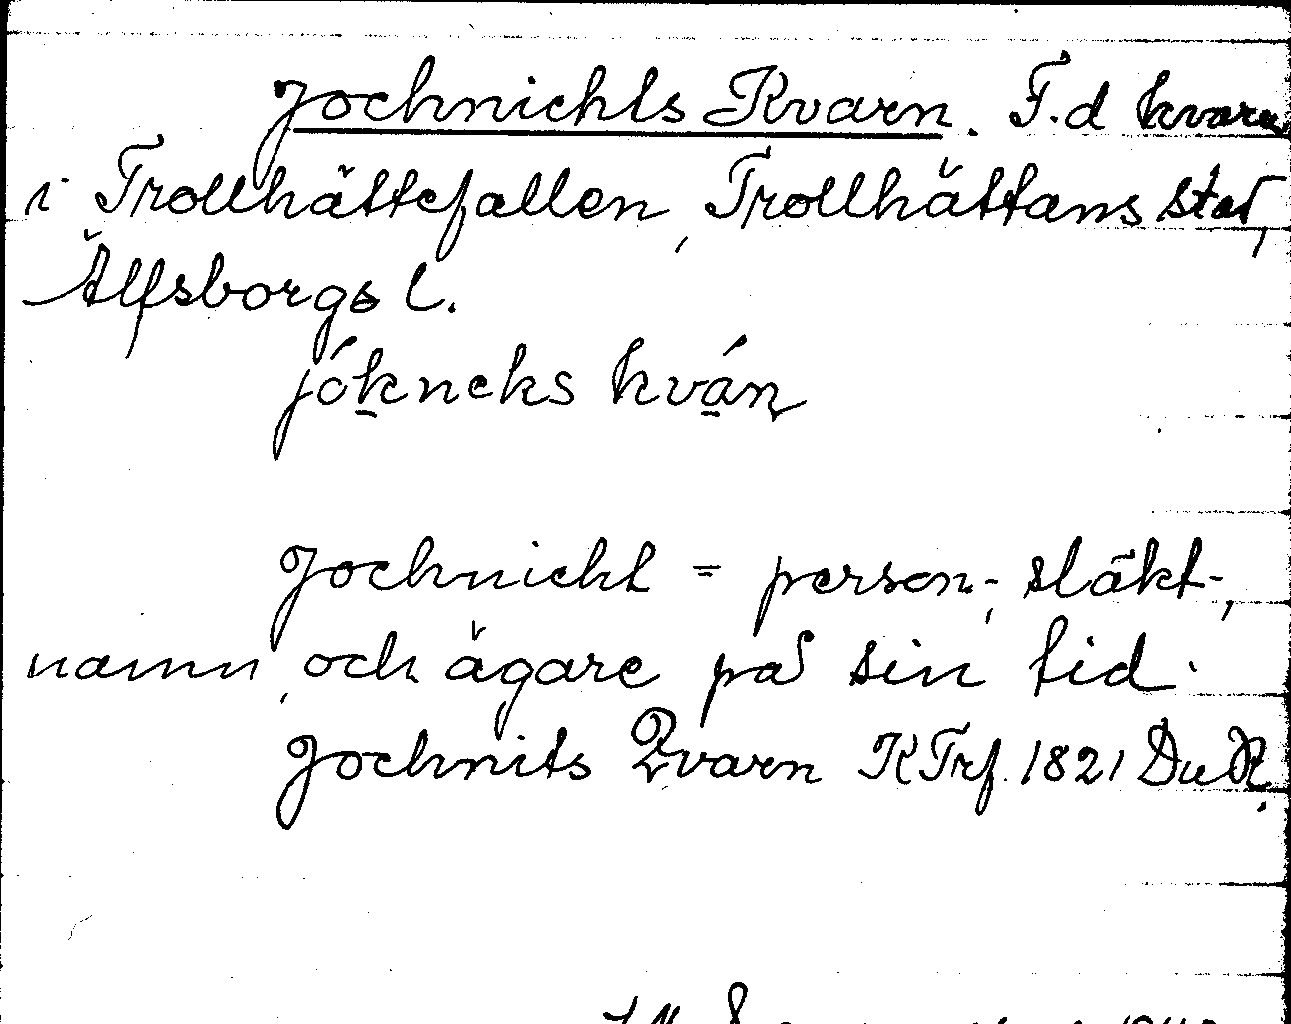 Jochnichts Kvarn. F.d kvarn
i Trollhättefallen, Trollhättans stad,
Älfsborgs l.
jókneks kván
Jochnicht = person-, släkt-,
namn, och ägare på sin tid.
Jochnits Qvarn KTrf. 1821 DuR.